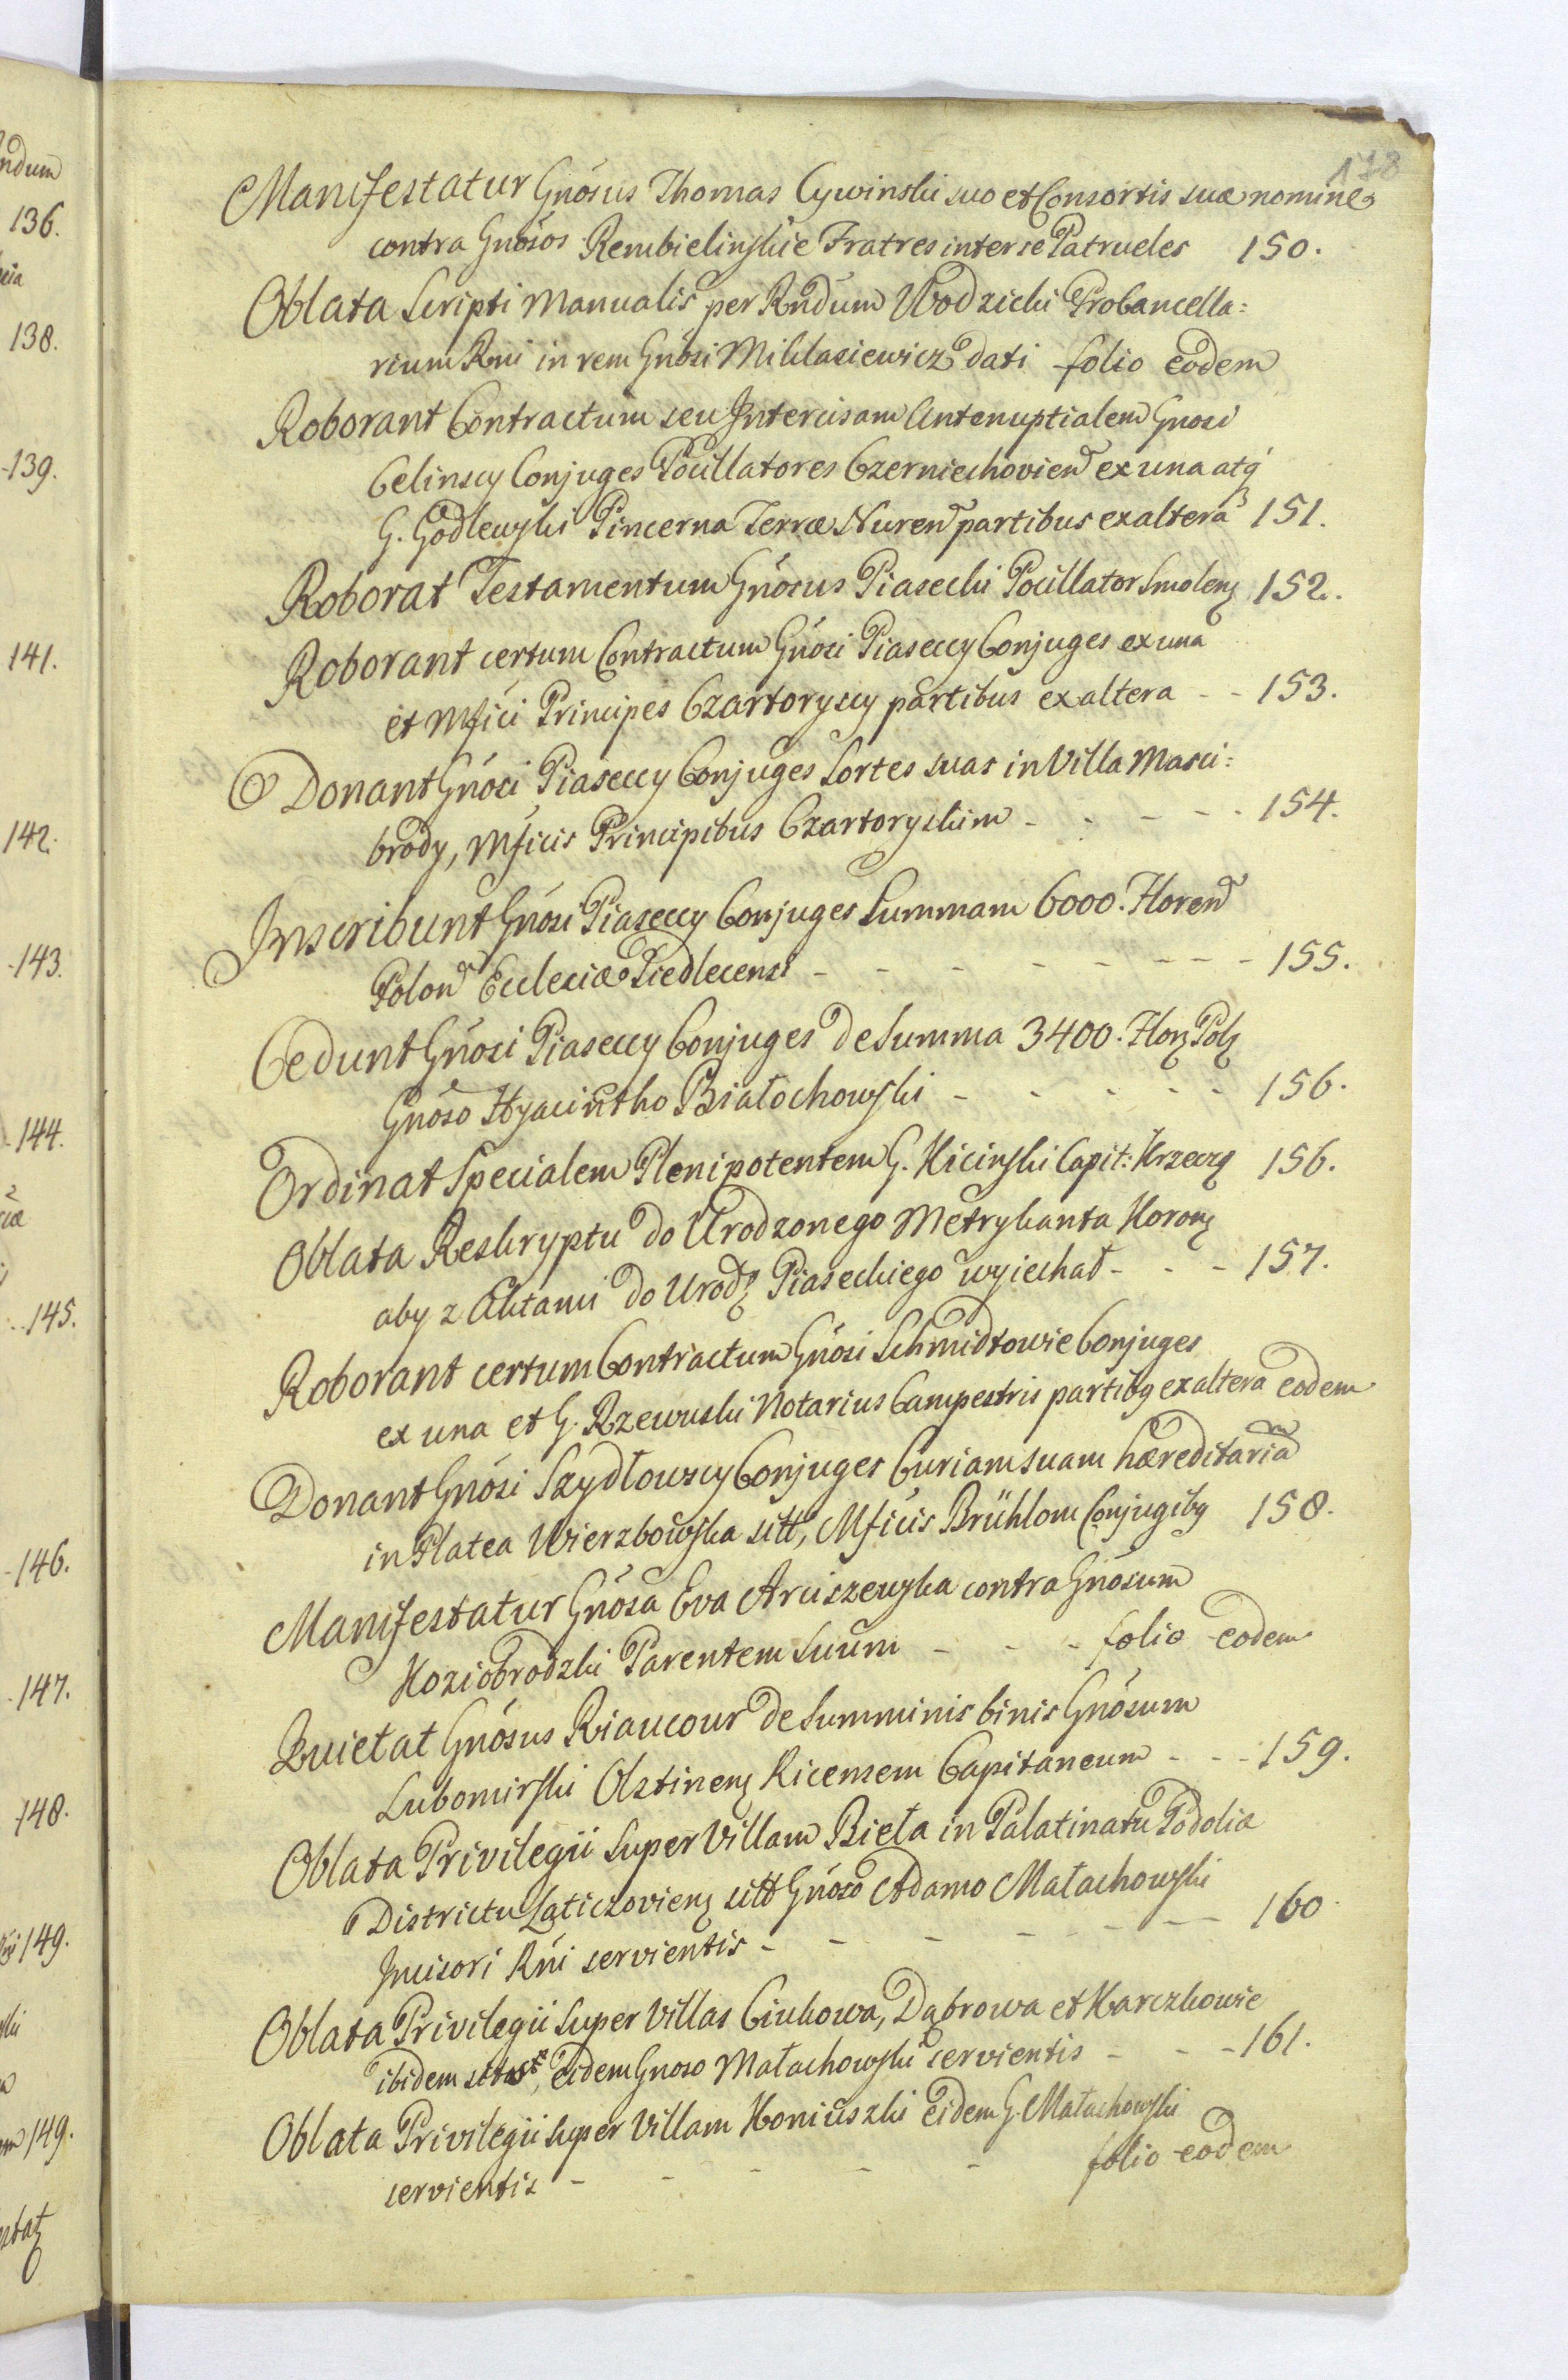 178
Manifestatur Gnosus Thomas Cywinski suo et Consortis suæ nomine
contra Gnosos Rembielinskie Fratres inter se Patrueles 150.
Oblata Scripti Manualis per Rndum Wodzicki ProCancella:
rium Rni in rem Gnosi Miklasiewicz dati folio eodem
Roborant Contractum seu Intercisam Antenuptialem Gnosi
Celinscy Conjuges Pocillatores Czerniechovien ex una atq
G. Godlewski Pincerna Terræ Nuren partibus ex altera 151.
Roborat Testamentum Gnosus Piasecki Pocillator Smolen 152.
Roborant certum Contractum Gnosi Piaseccy Conjuges ex una
et Mfici Principes Czartoryscy partibus ex altera - - 153.
Donant Gnosi Piaseccy Conjuges Sortes suas in Villa Masci:
brody, Mficis Principibus Czartoryskim - - - - - 154.
Inscribunt Gnosi Piaseccy Conjuges Summam 6000. Floren
Polon Ecclesiæ Siedlecensi - - - - - - - - 155.
Cedunt Gnosi Piaseccy Conjuges de Summa 3400. Flor Pol
Gnoso Hyacintho Białochowski - - - - - - 156.
Ordinat Specialem Plenipotentem G. Kicinski Capit: Krzecz 156.
Oblata Reskryptu do Urodzonego Metrykanta Koron
aby z Aktami do Urodz Piaseckiego wyiechał - - - 157.
Roborant certum Contractum Gnosi Schmidtowie Conjuges
ex una et G. Rzewuski Notarius Campestris partibq ex altera eodem
Donant Gnosi Szydłowscy Conjuges Curiam suam hæreditariã
in Platea Wierzbowska sitt, Mficis Brühlom Conjugibq 158.
Manifestatur Gnosa Eva Arciszewska contra Gnosum
Koziobrodzki Parentem Suum - - - folio eodem
Quietat Gnosus Riaucour de Summinis binis Gnosum
Lubomirski Olsztinen Ricensem Capitaneum - - - 159.
Oblata Privilegii super Villam Bieła in Palatinatu Podolia
Districtu Laticzovien sitt Gnoso Adamo Małachowski
Incisori Rni servientis - - - - - - - 160
Oblata Privilegii super Villas Ciukowa, Dąbrowa et Karczkowie
ibidem sitas, eidem Gnoso Małachowski servientis - - - 161.
Oblata Privilegii super Villam Koniuszki Eidem G. Małachowski
servientis - - - - - folio eodem
ndum
136.
138.
139.
141.
142.
143.
144.
145.
146.
147.
148.
149.
149.